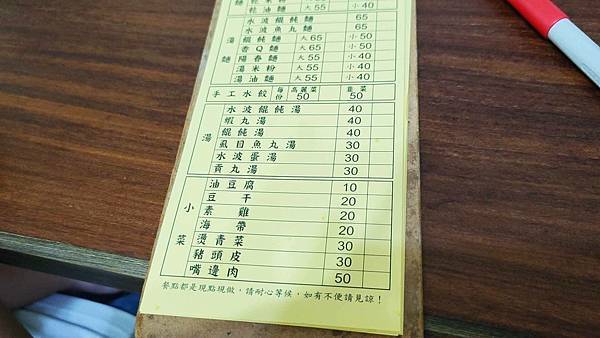 麵 乾油麵 大55 小40
水波餛飩麵 65
水波魚丸麵 65
湯麵 餛飩麵 大65 小50
香Q麵 大65 小50
陽春麵 大55 小40
湯米粉 大55 小40
湯油麵 大55 小40
手工水餃 每份 高麗菜 50 韭菜 50
湯
水波餛飩湯 40
蝦丸湯 40
餛飩湯 40
虱目魚丸湯 30
水波蛋湯 30
貢丸湯 30
小菜
油豆腐 10
豆干 20
素雞 20
海帶 20
燙青菜 30
豬頭皮 30
嘴邊肉 50
餐點都是現點現做，請耐心等候，如有不便請見諒！